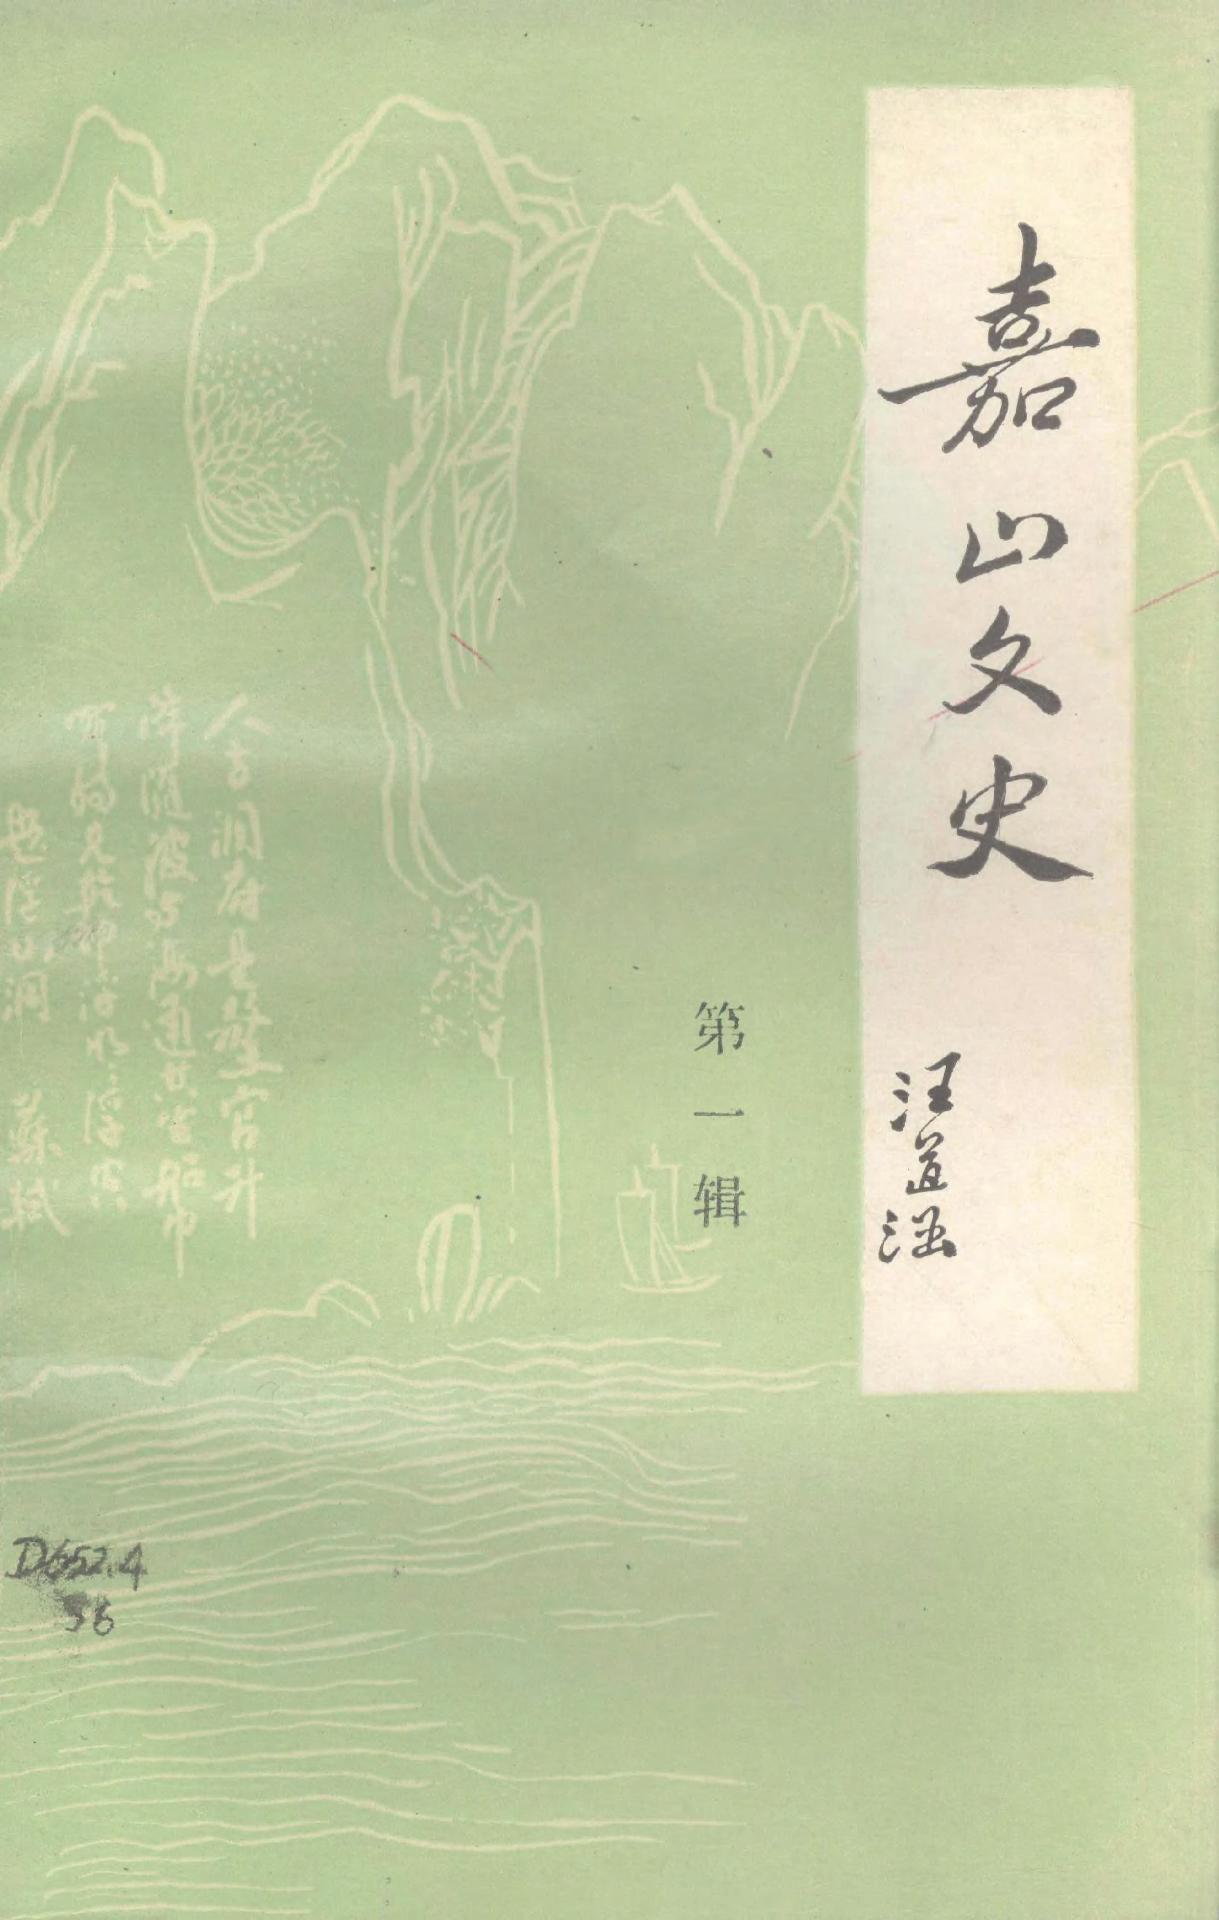 嘉山文史
汪道涵
第一辑
人言洞府是鳌宫升
降随波与海通共坐船中
那得见乾坤浮水水浮空
题浮山洞 苏轼
D652.4
56